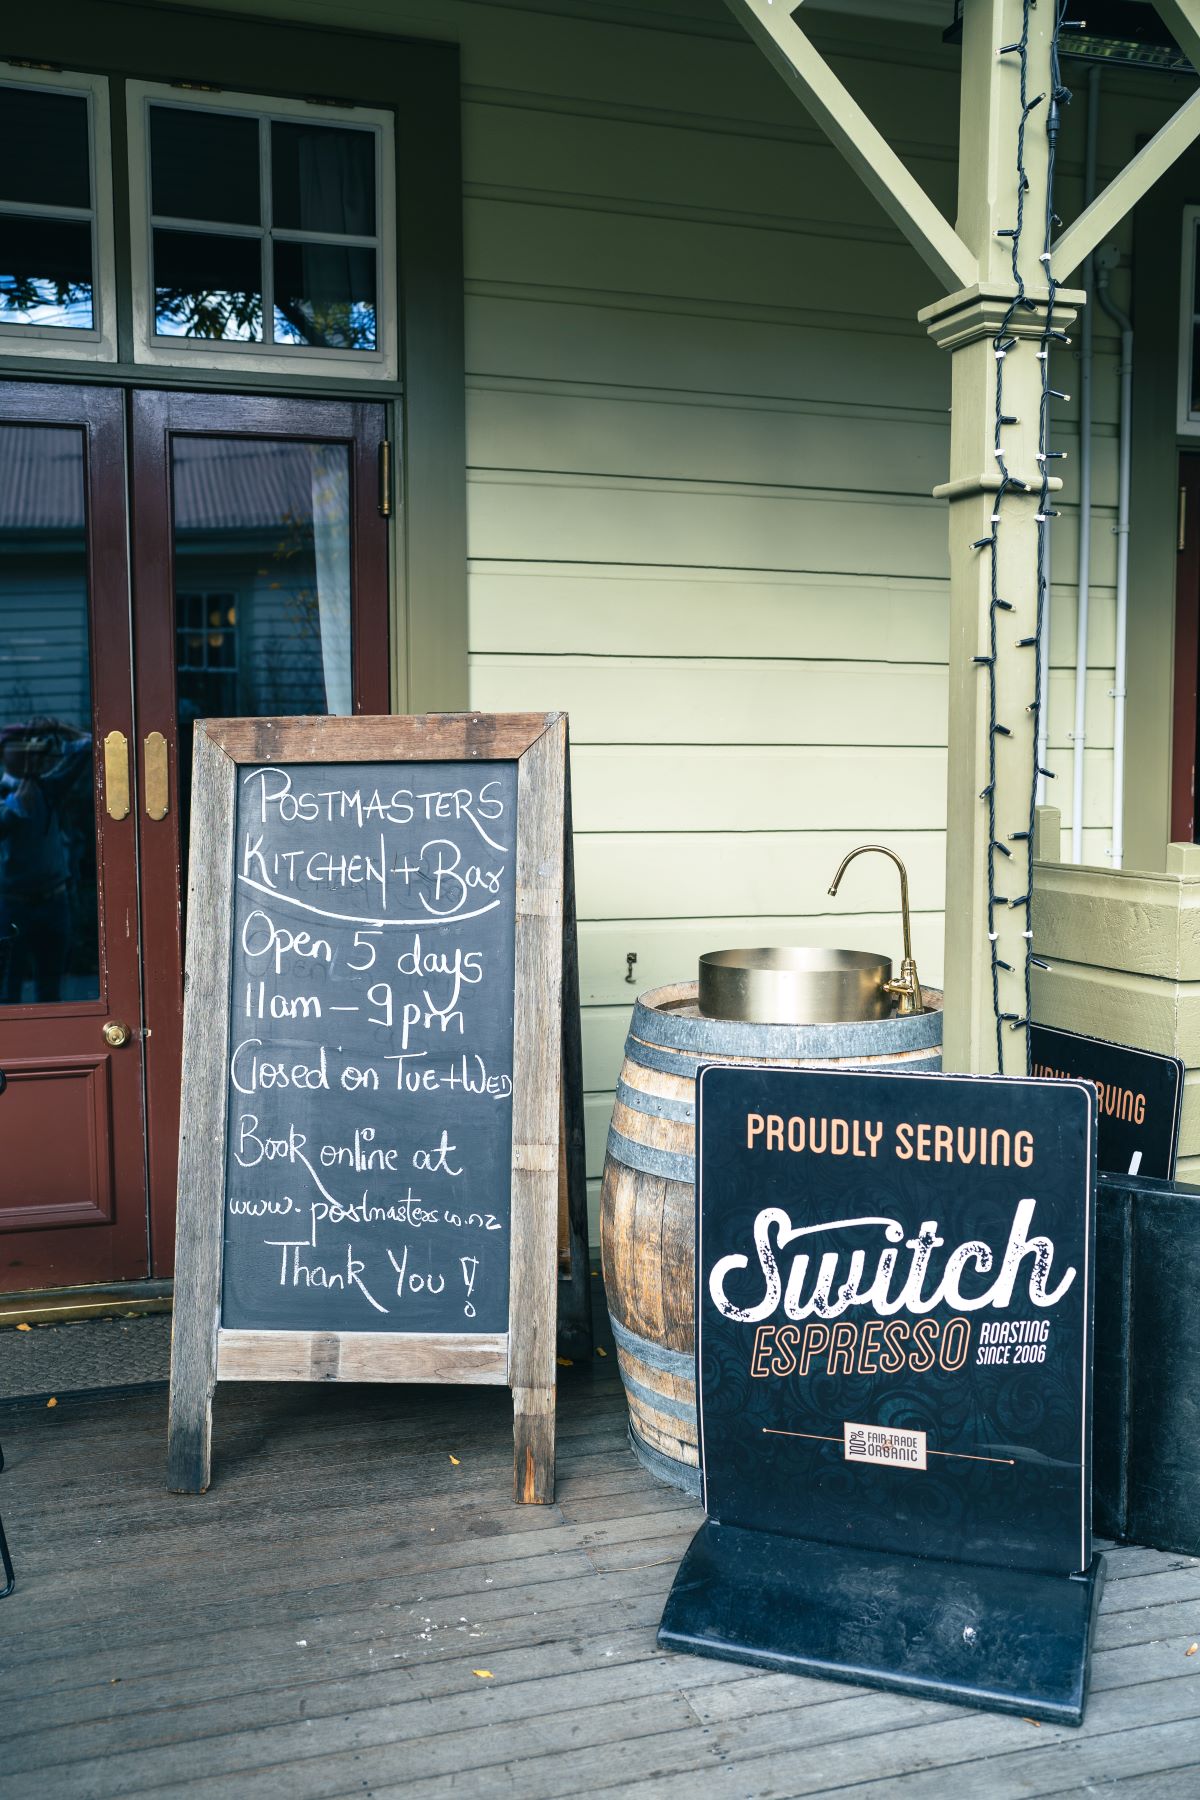 POSTMASTERS
KITCHEN + Bar
Open 5 days
11am – 9pm
Closed on TUE + WED
Book online at
www.postmasters.co.nz
Thank You !
PROUDLY SERVING
Switch
ESPRESSO
ROASTING
SINCE 2006
100%
FAIR TRADE
ORGANIC
RVING